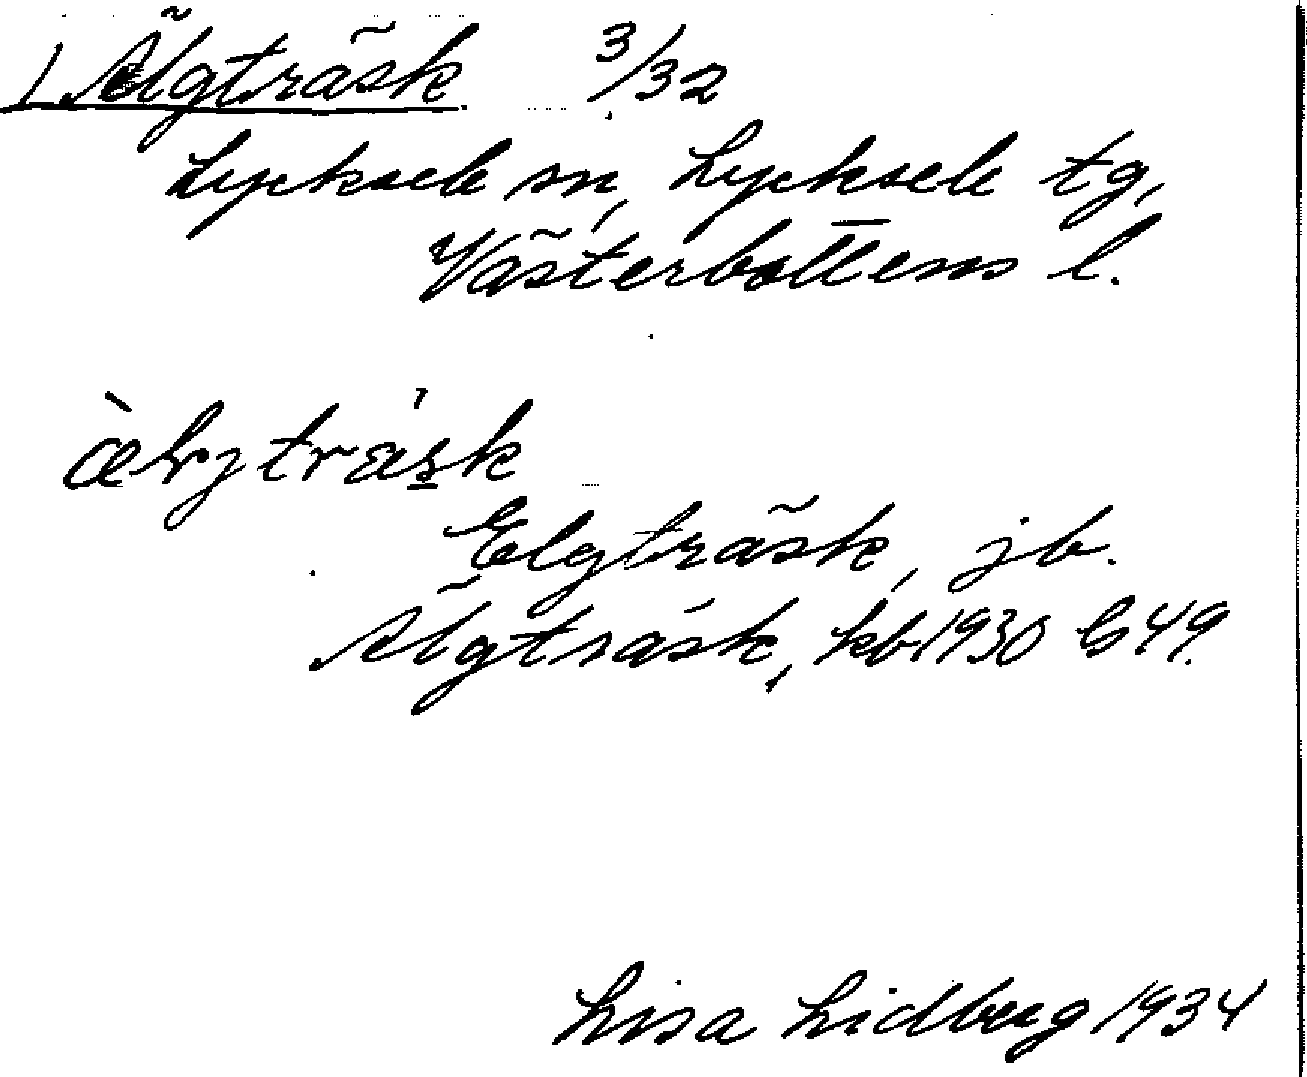 1. Älgträsk 3/32
Lycksele sn, Lycksele tg,
Västerbottens l.
Elgträsk, jb.
Älgträsk, kb 1930 G 49.
Lisa Lidberg 1934